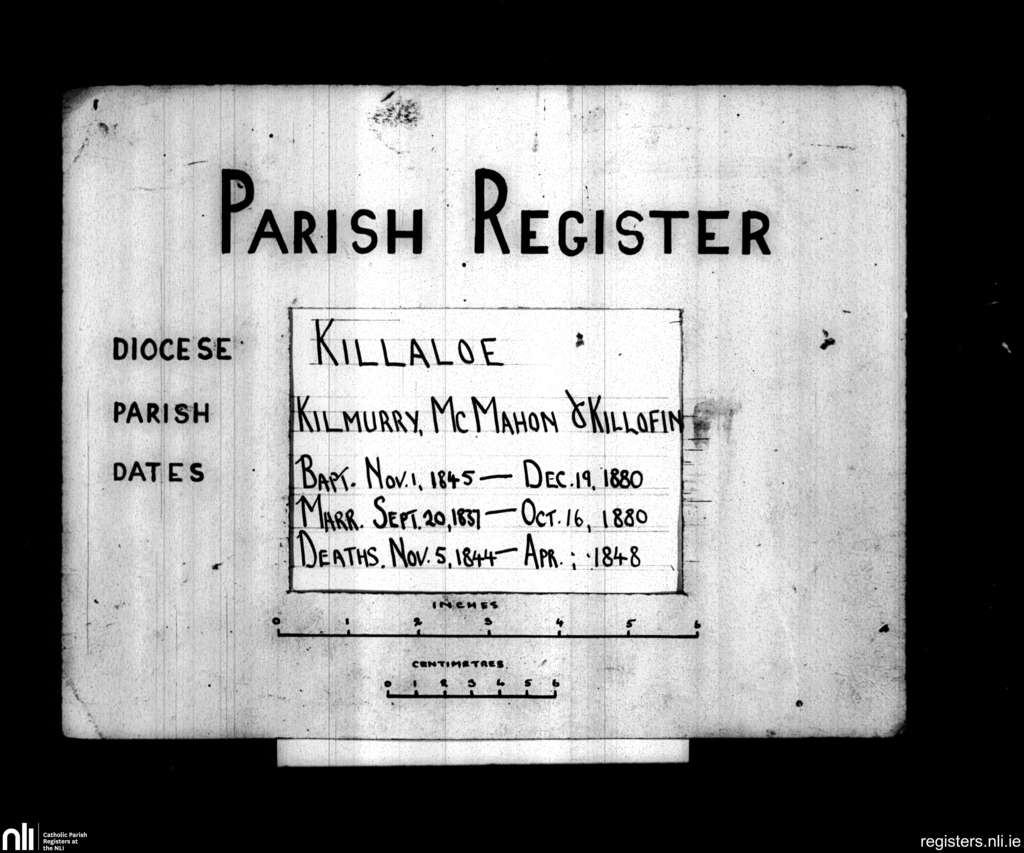 PARISH REGISTER
DIOCESE KILLALOE
PARISH KILMURRY, MCMAHON & KILLOFIN
DATES BAPT. NOV. 1, 1845 — DEC. 19, 1880
MARR. SEPT. 20, 1837 — OCT. 16, 1880
DEATHS. NOV. 5, 1844 — APR. ; 1848
INCHES
0 1 2 3 4 5 6
CENTIMETRES
0 1 2 3 4 5 6
nli Catholic Parish
Registers at
the NLI
registers.nli.ie